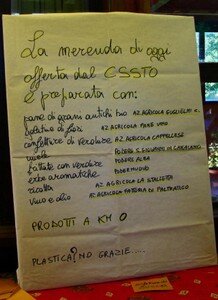 La merenda di oggi
offerta dal CSSTO
è preparata con:
pane di grani antichi bio AZ. AGRICOLA GUGLIELMI
gelatine di fiori AZ. AGRICOLA PANE VINO
confetture di verdure AZ. AGRICOLA CAPPELLESE
miele PODERE S. GIOVANNI DI
frittate con verdure PODERE ALBA
erbe aromatiche PODERNUOVO
ricotta AZ. AGRICOLA LA
Vino e olio AZ. AGRICOLA FATTORIA DI
PRODOTTI A KM 0
PLASTICA? NO GRAZIE.....